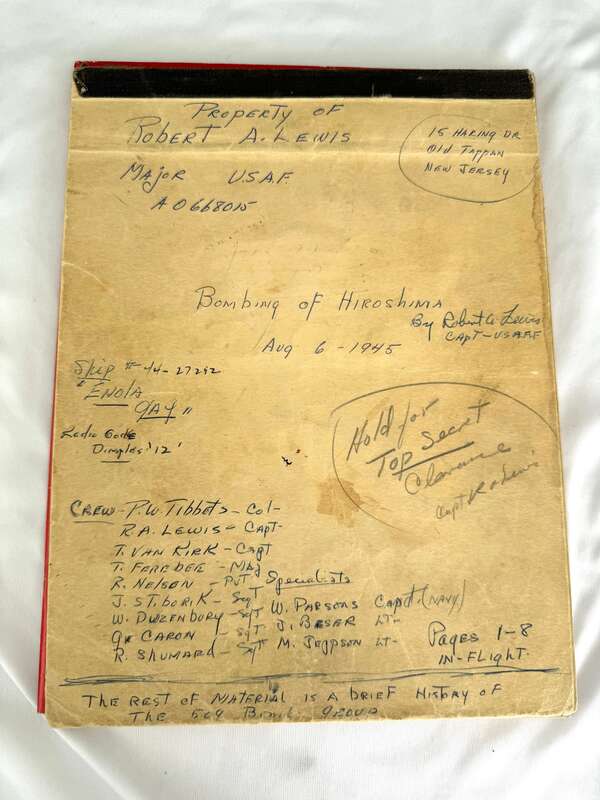 Property of
Robert A. Lewis
Major U.S.A.F.
AO668015
15 Haring Dr
Old Tappan
New Jersey
Bombing of Hiroshima
By Robert A. Lewis
Capt-USAAF
Aug 6-1945
Ship #44-27292
"Enola
Gay"
Radio Code
Dimples '12'
Hold for
Top Secret
Clearance
Capt R A Lewis
Crew - P.W Tibbets - Col-
R.A. Lewis - Capt-
T. Van Kirk - Capt
T. Ferebee - Maj
R. Nelson - Pvt
J. Stiborik - Sgt
W. Duzenbury - Sgt
G. Caron - Sgt
R. Shumard - Sgt
Specialists
W. Parsons Capt. (Navy)
J. Beser Lt-
M. Jeppson Lt-
Pages 1-8
in-flight.
The rest of material is a brief history of
The 509 Bomb. Group